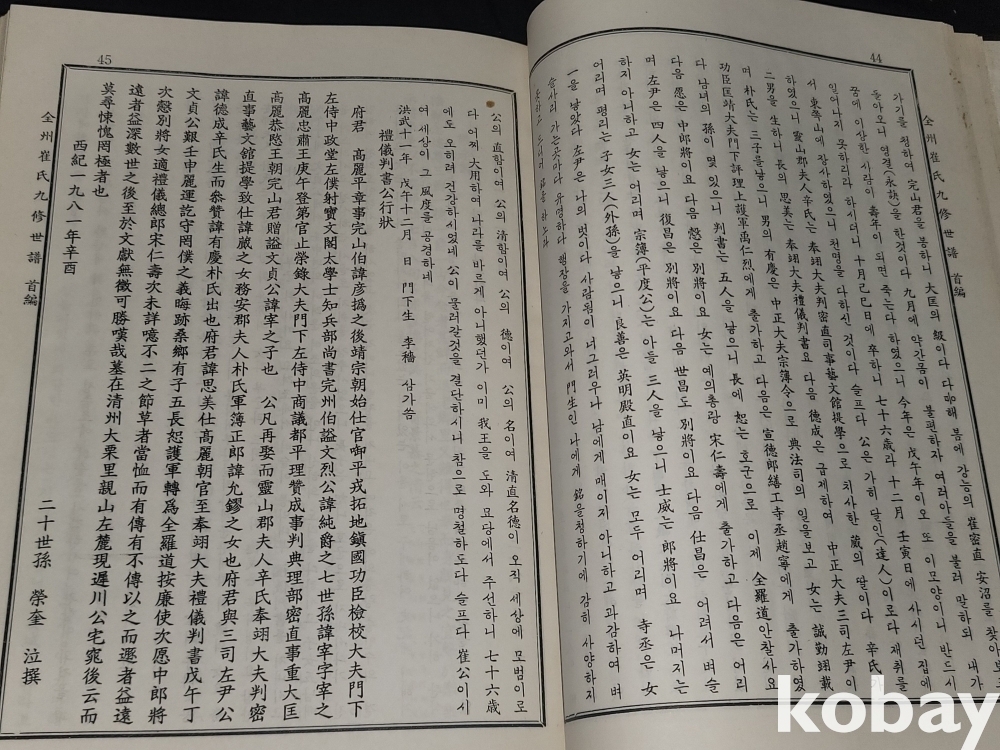 44
全州崔氏九修世譜 首編
가기를 청하여 完山君을 봉하니 大匡의 級이다 다음해 봄에 강능의 崔密直 安沼를 찾아
돌아오니 영결(永訣)을 한것이다 九月에 약간몸이 불편하자 여러아들을 불러 말하되 내가
꿈에 이상한 사람이 壽年이 되면 죽는다 하였으니 今年은 戊午年이오 또 이모양이니 반드시
일어나지 못하리라 하시더니 十月己巳日에 卒하니 七十六歲라 十二月 壬寅日에 사시던 집에
서 東쪽山에 장사하였으니 천명을 다하신 것이다 슬프다 公은 가히 달인(達人)이로다 재취를
하였으니 靈山郡夫人辛氏는 奉翊大夫判密直司事藝文館提學으로 치사한 蕆의 딸이다 辛氏가
二男을 生하니 長의 思美는 奉翊大夫禮儀判書요 다음 德成은 급제하여 中正大夫三司左尹이
며 朴氏는 三子를 낳으니 男의 有慶은 中正大夫宗簿令으로 典法司의 일을보고 女는 誠勤翊戴
功臣匡靖大夫門下評理上護軍禹仁烈에게 출가하고 다음은 宣德郎繕工寺丞趙寧에게 출가하였
다 남녀의 孫이 몇 있으니 判書는 五人을 낳으니 長에 恕는 호군으로 이제 全羅道안찰사요
다음 愿은 中郎將이요 다음 慤은 別將이요 女는 예의총랑 宋仁壽에게 출가하고 다음은 어리
며 左尹은 四人을 낳으니 復昌은 別將이요 다음 世昌도 別將이요 다음 仕昌은 어려서 벼슬
하지 아니하고 女는 어리며 宗簿(平度公)는 아들 三人을 낳으니 士威는 郎將이요 나머지는
어리며 평리는 子女三人(外孫)을 낳으니 良善은 英明殿直이요 女는 모두 어리며 寺丞은 女
一을 낳았다 左尹은 나의 벗이다 사람됨이 너그러우나 남에게 매이지 아니하고 과감하여 벼
슬사리 가는곳마다 유명하다 행장을 가지고와서 門生인 나에게 銘을청하기에 감히 사양하지
45
全州崔氏九修世譜 首編
公의 直함이여 公의 清함이여 公의 德이여 公의 名이여 清直名德이 오직 세상에 모범이로
다 어찌 大用하여 나라를 바르게 아니했던가 이미 我王을 도와 묘당에서 주선하니 七十六歲
에도 오히려 건강하시었네 公이 물러갈것을 결단하시니 참으로 명철하도다 슬프다 崔公이시
여 세상이 그 風度를 공경하네
洪武十一年 戊午十二月 日 門下生 李穡 삼가씀
禮儀判書公行狀
府君 高麗平章事完山伯諱彦撝之後靖宗朝始仕官御平戎拓地鎭國功臣檢校大夫門下
左侍中政堂左僕射寶文閣太學士知兵部尚書完州伯謚文烈公諱純爵之七世孫諱宰字宰之
高麗忠肅王庚午登第官止榮錄大夫門下左侍中商議都平理贊成事判典理部密直事重大匡
高麗恭愍王朝完山君贈謚文貞公諱宰之子也 公凡再娶而靈山郡夫人辛氏奉翊大夫判密
直事藝文舘提學致仕諱蕆之女務安郡夫人朴氏軍簿正郎諱允鏐之女也府君與三司左尹公
諱德成辛氏生而叅贊諱有慶朴氏出也府君諱思美仕高麗朝官至奉翊大夫禮儀判書戊午丁
文貞公艱壬申麗運訖守罔僕之義晦跡桑鄉有子五長恕護軍轉爲全羅道按廉使次愿中郎將
次慤別將女適禮儀總郎宋仁壽次未詳噫不二之節草者當恤而有傳有不傳以之而遯者益遠
遠者益深數世之後至於文獻無徵可勝嘆哉墓在清州大栗里親山左麓現遲川公宅窕後云而
莫尋悚愧罔極者也
西紀一九八一年辛酉
二十世孫 榮奎 泣撰
kobay